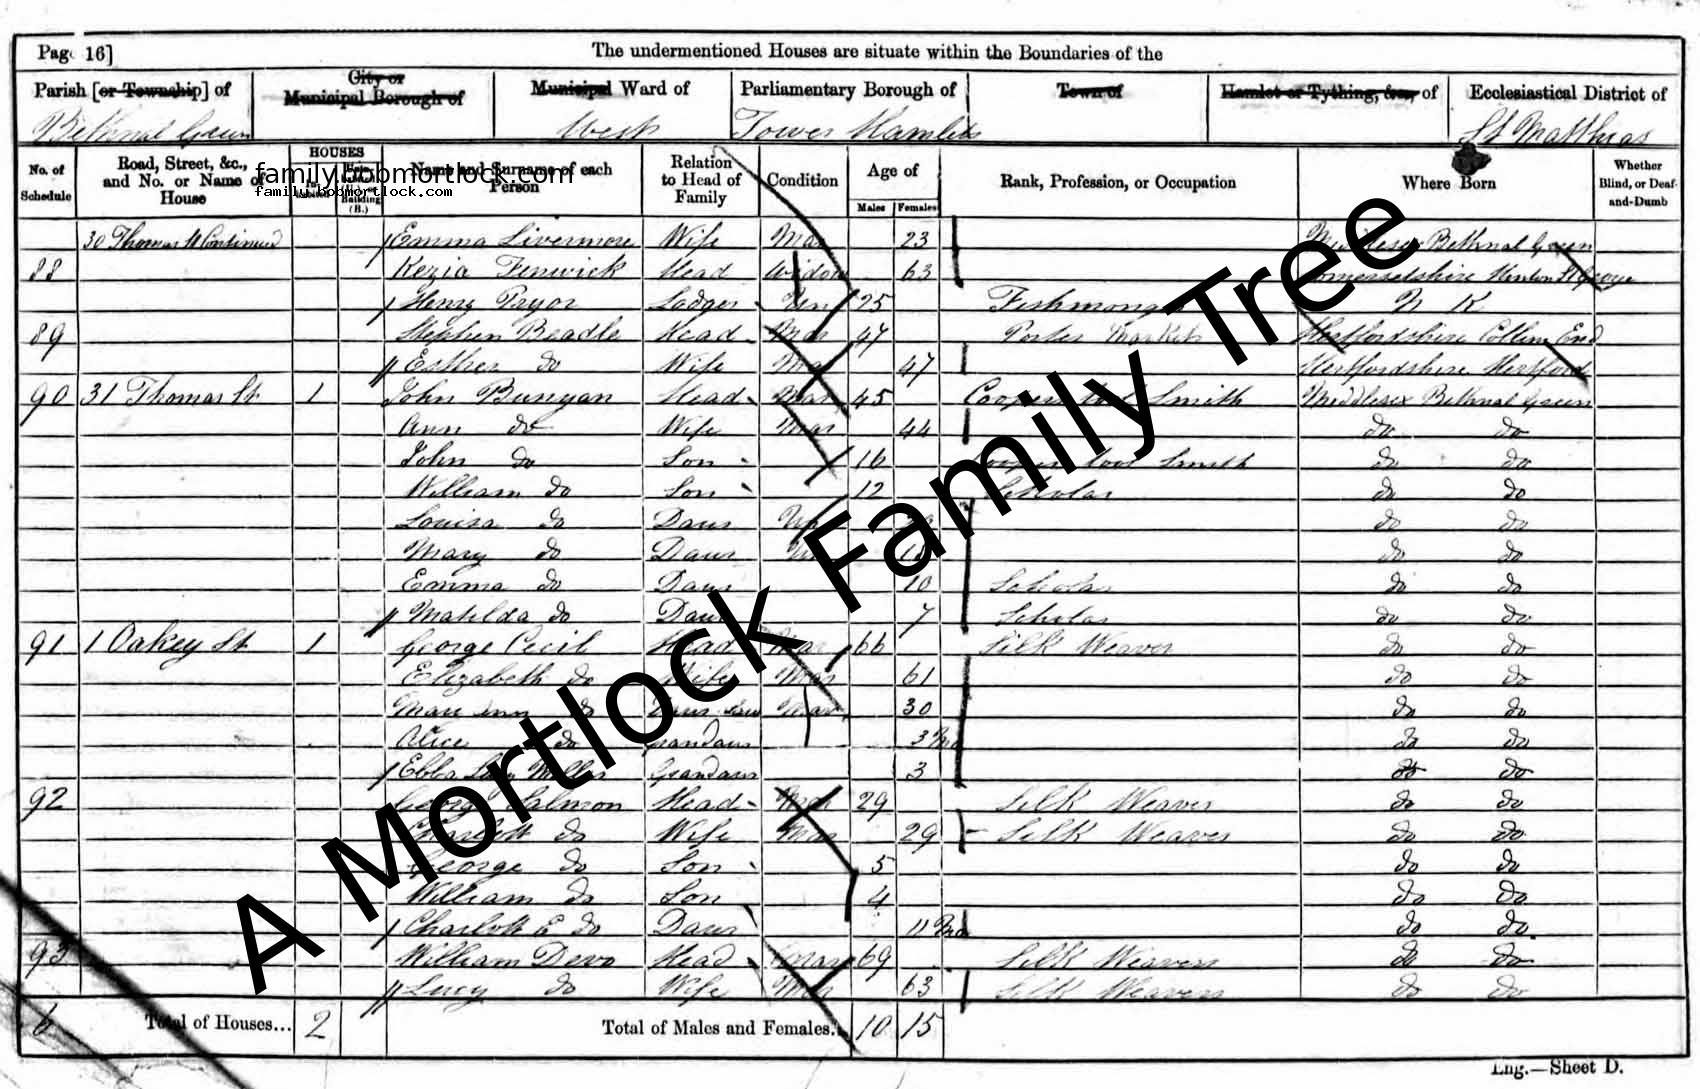 Page 16]
The undermentioned Houses are situate within the Boundaries of the
Parish [or Township] of City or Municipal Borough of Municipal Ward of Parliamentary Borough of Town of Hamlet or Tything, &c., of Ecclesiastical District of
Bethnal Green West Tower Hamlets St Matthias
No. of Schedule Road, Street, &c., and No. or Name of House HOUSES Name and Surname of each Person Relation to Head of Family Condition Age of Males Females Rank, Profession, or Occupation Where Born Whether Blind, or Deaf-and-Dumb
family.bobmortlock.com
family.bobmortlock.com
30 Thomas St Continued Emma Livermore Wife Mar 23 Middlesex Bethnal Green
88 Kezia Fenwick Head Widow 63 Somersetshire
Henry Pryor Lodger Un 25 Fishmonger N K
89 Stephen Beadle Head Mar 47 Porter Market Hertfordshire End
Esther Do Wife Mar 47 Hertfordshire Hertford
90 31 Thomas St 1 John Bunyan Head Mar 45 Coopers tool Smith Middlesex Bethnal Green
Ann do Wife Mar 44 do do
John do Son 16 Coopers tool Smith do do
William do Son 12 Scholar do do
Louisa do Daur Un do do
Mary do Daur Un 18 do do
Emma do Daur 10 Scholar do do
Matilda do Daur 7 Scholar do do
91 1 Oakey St 1 George Cecil Head Mar 66 Silk Weaver do do
Elizabeth do Wife Mar 61 do do
Mary Ann do Daur Law Mar 30 do do
Alice do Grandaur 3 Mo do do
Ebba Miller Grandaur 3 do do
92 George Salmon Head Mar 29 Silk Weaver do do
Charlott do Wife Mar 29 Silk Weaver do do
George do Son 5 do do
William do Son 4 do do
Charlott E do Daur 11 Mo do do
93 William Devo Head Mar 69 Silk Weaver do do
Lucy do Wife Mar 63 Silk Weaver do do
6 Total of Houses... 2 Total of Males and Females... 10 15
Eng.—Sheet D.
A Mortlock Family Tree